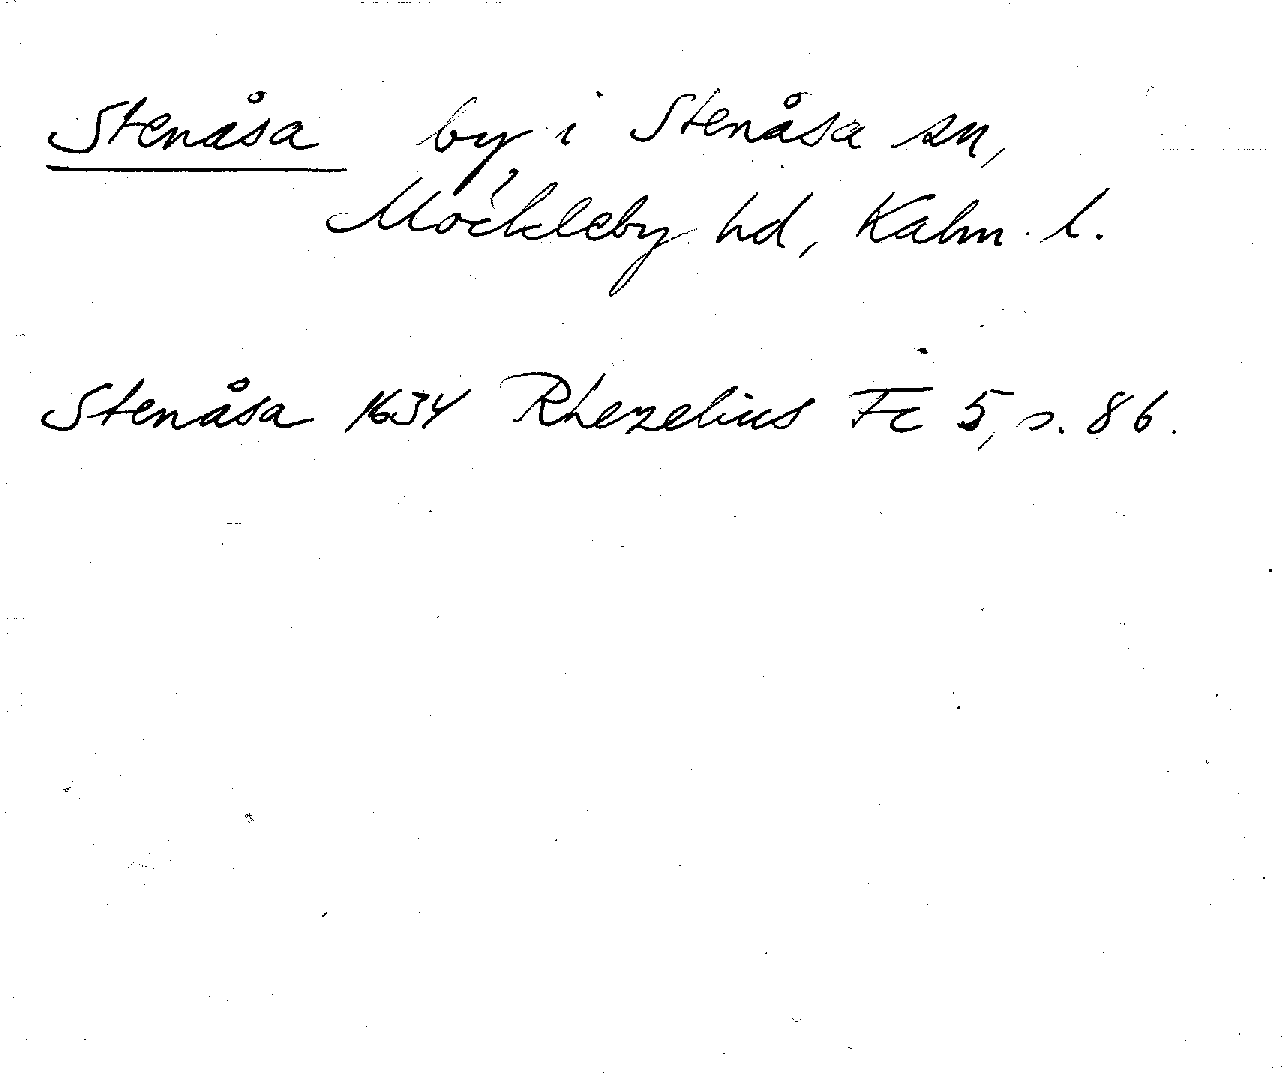 Stenåsa by i Stenåsa sn,
Möckleby hd, Kalm. l.
Stenåsa 1634 Rhezelius Fc 5, s. 86.